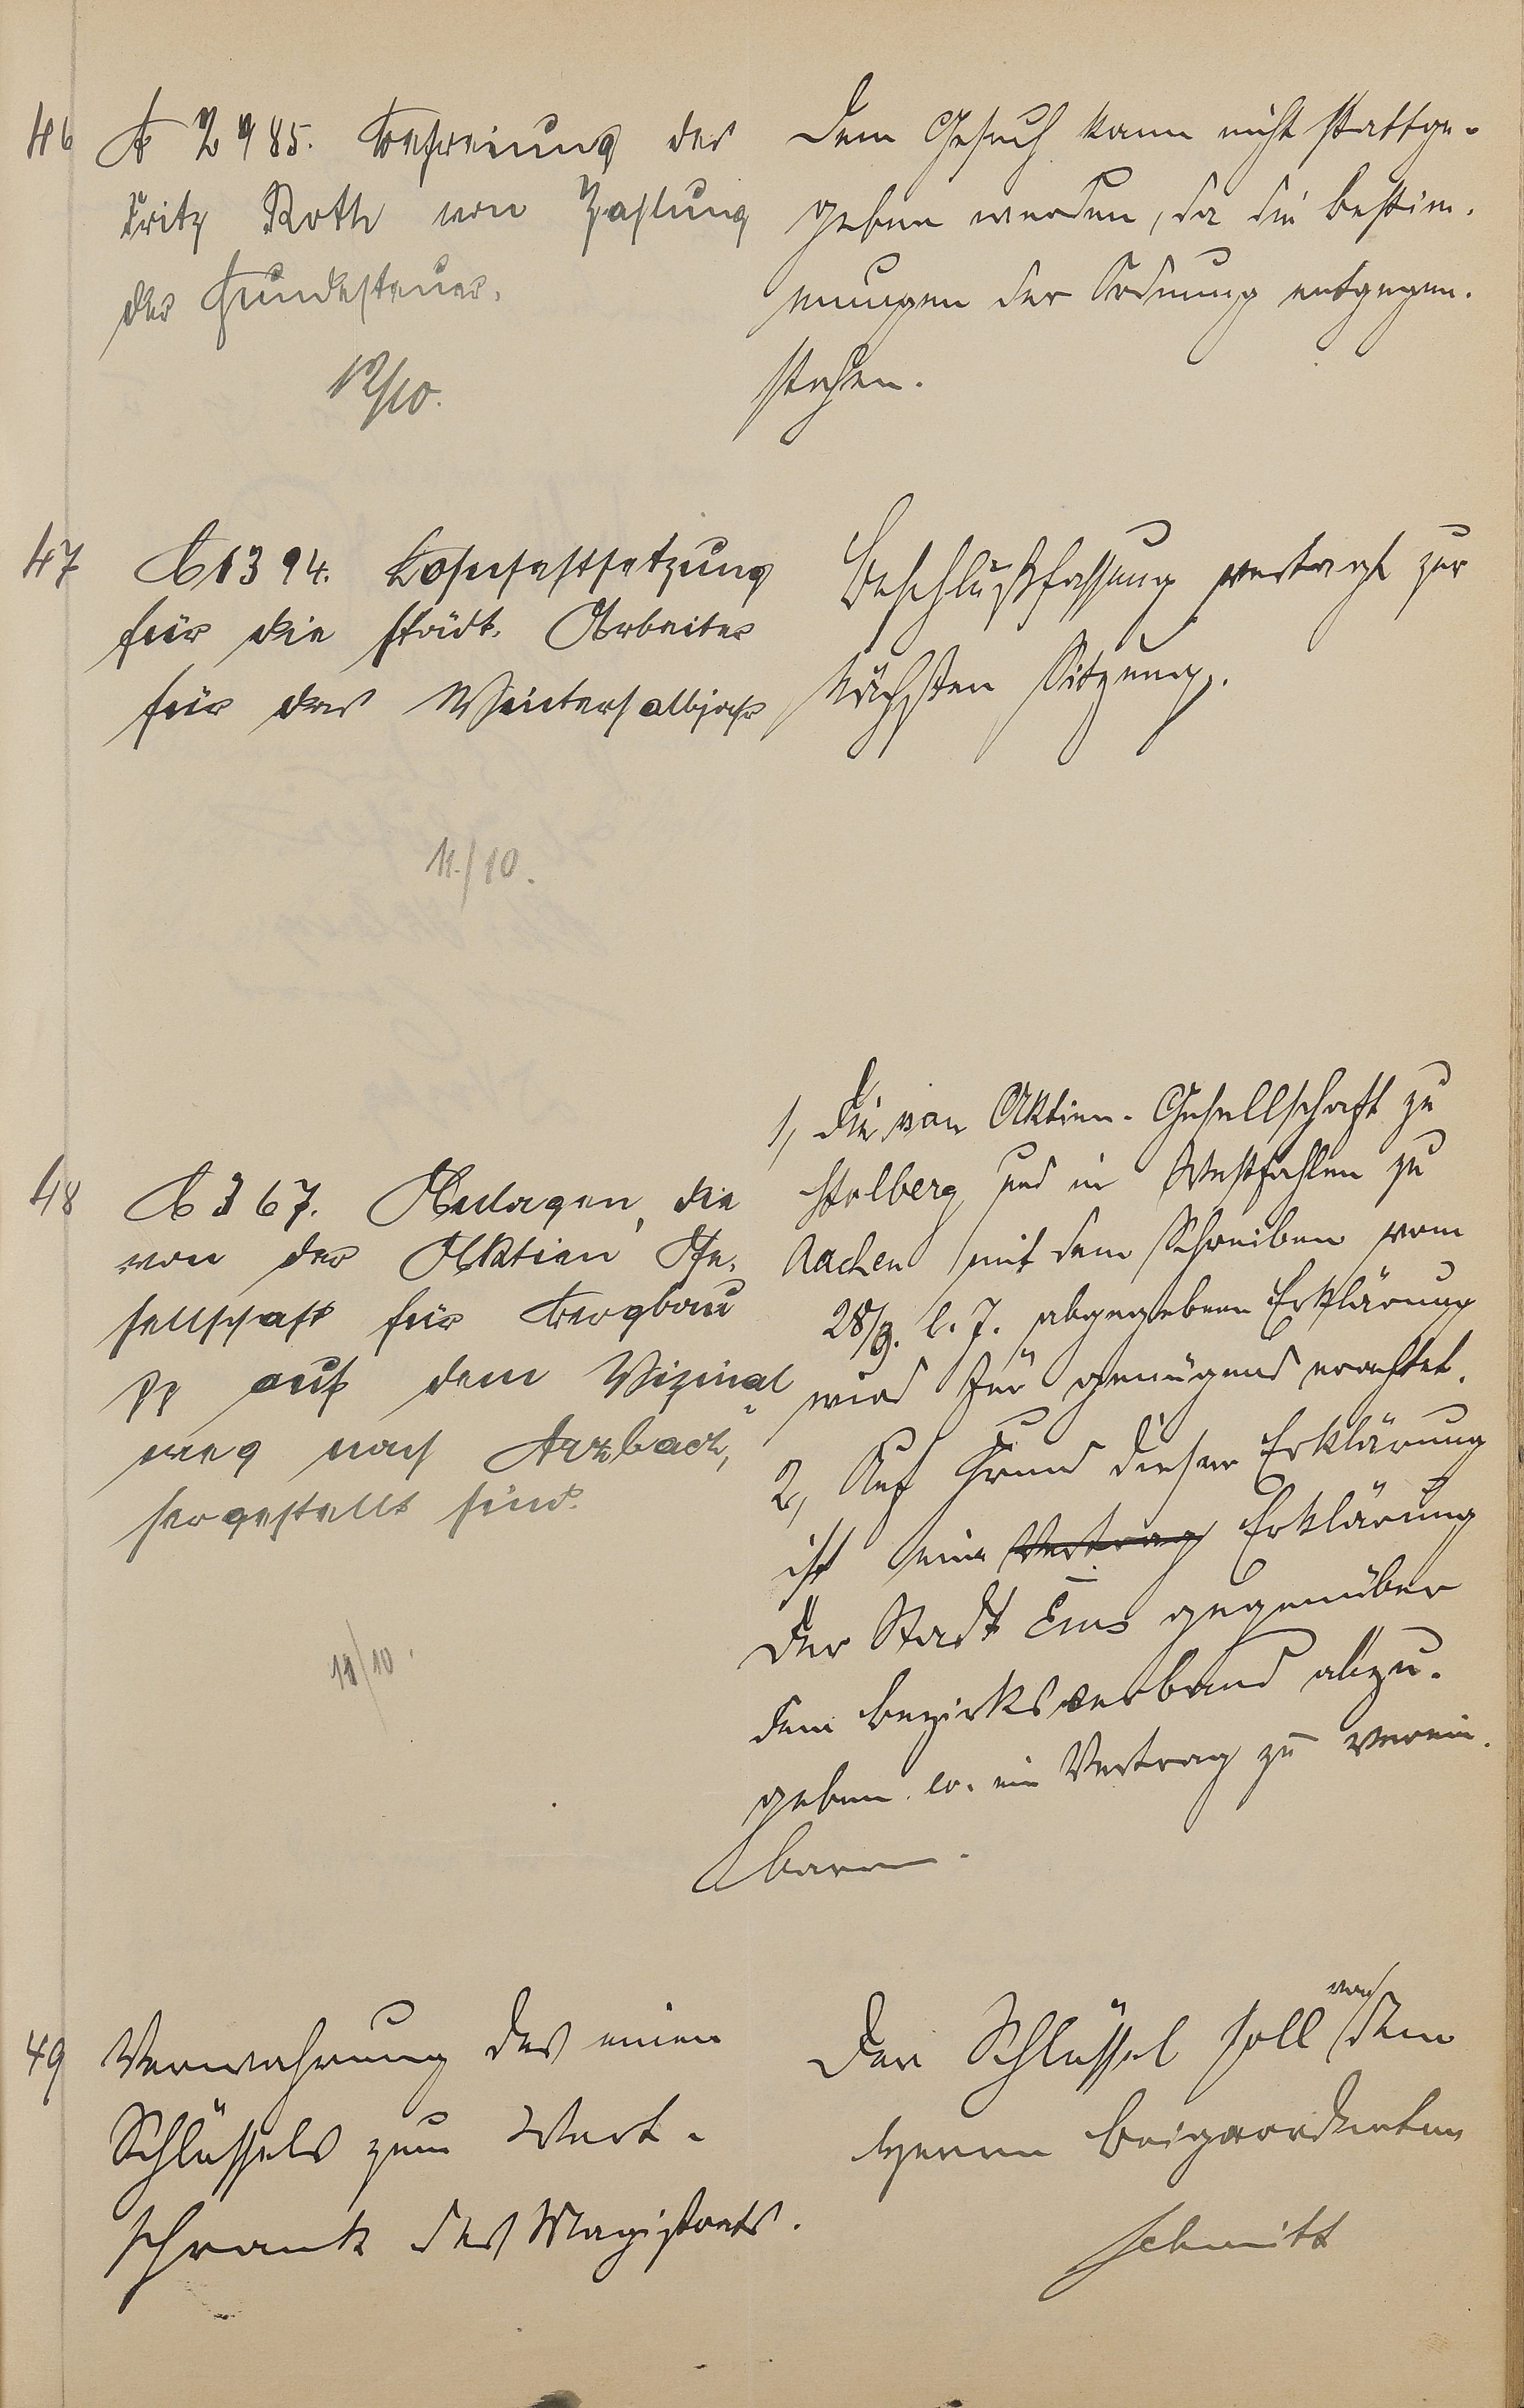 46
A 2985. Befreiung des
Fritz Roth von Zahlung
der Hundesteuer.
12/10.
Dem Gesuch kann nicht stattge-
geben werden, da die Bestim-
mungen der Ordnung entgegen-
stehen.
47
A 1394. Lohnfestsetzung
für die städt. Arbeiter
für das Winterhalbjahr
11./10.
Beschlußfassung vertagt zur
nächsten Sitzung.
48
A 367. Anlagen, die
von der Aktien Ge-
sellschaft für Bergbau
pp auf dem Vizinal
weg nach Arzbach,
hergestellt sind.
11/10.
1, Die von Aktien-Gesellschaft zu
Stolberg und in Westfahlen zu
Aachen mit dem Schreiben vom
28/9. l. J. abgegebene Erklärung
wird für genügend erachtet.
2, Auf Grund dieser Erklärung
ist eine Vertrag Erklärung
der Stadt Ems gegenüber
dem Bezirksverband abzu-
geben ev. ein Vertrag zu verein-
baren.
49
Verwahrung des einen
Schlüssels zum Wert-
schrank des Magistrats.
Den Schlüssel soll dem
Herrn Beigeordneten
Schmitt